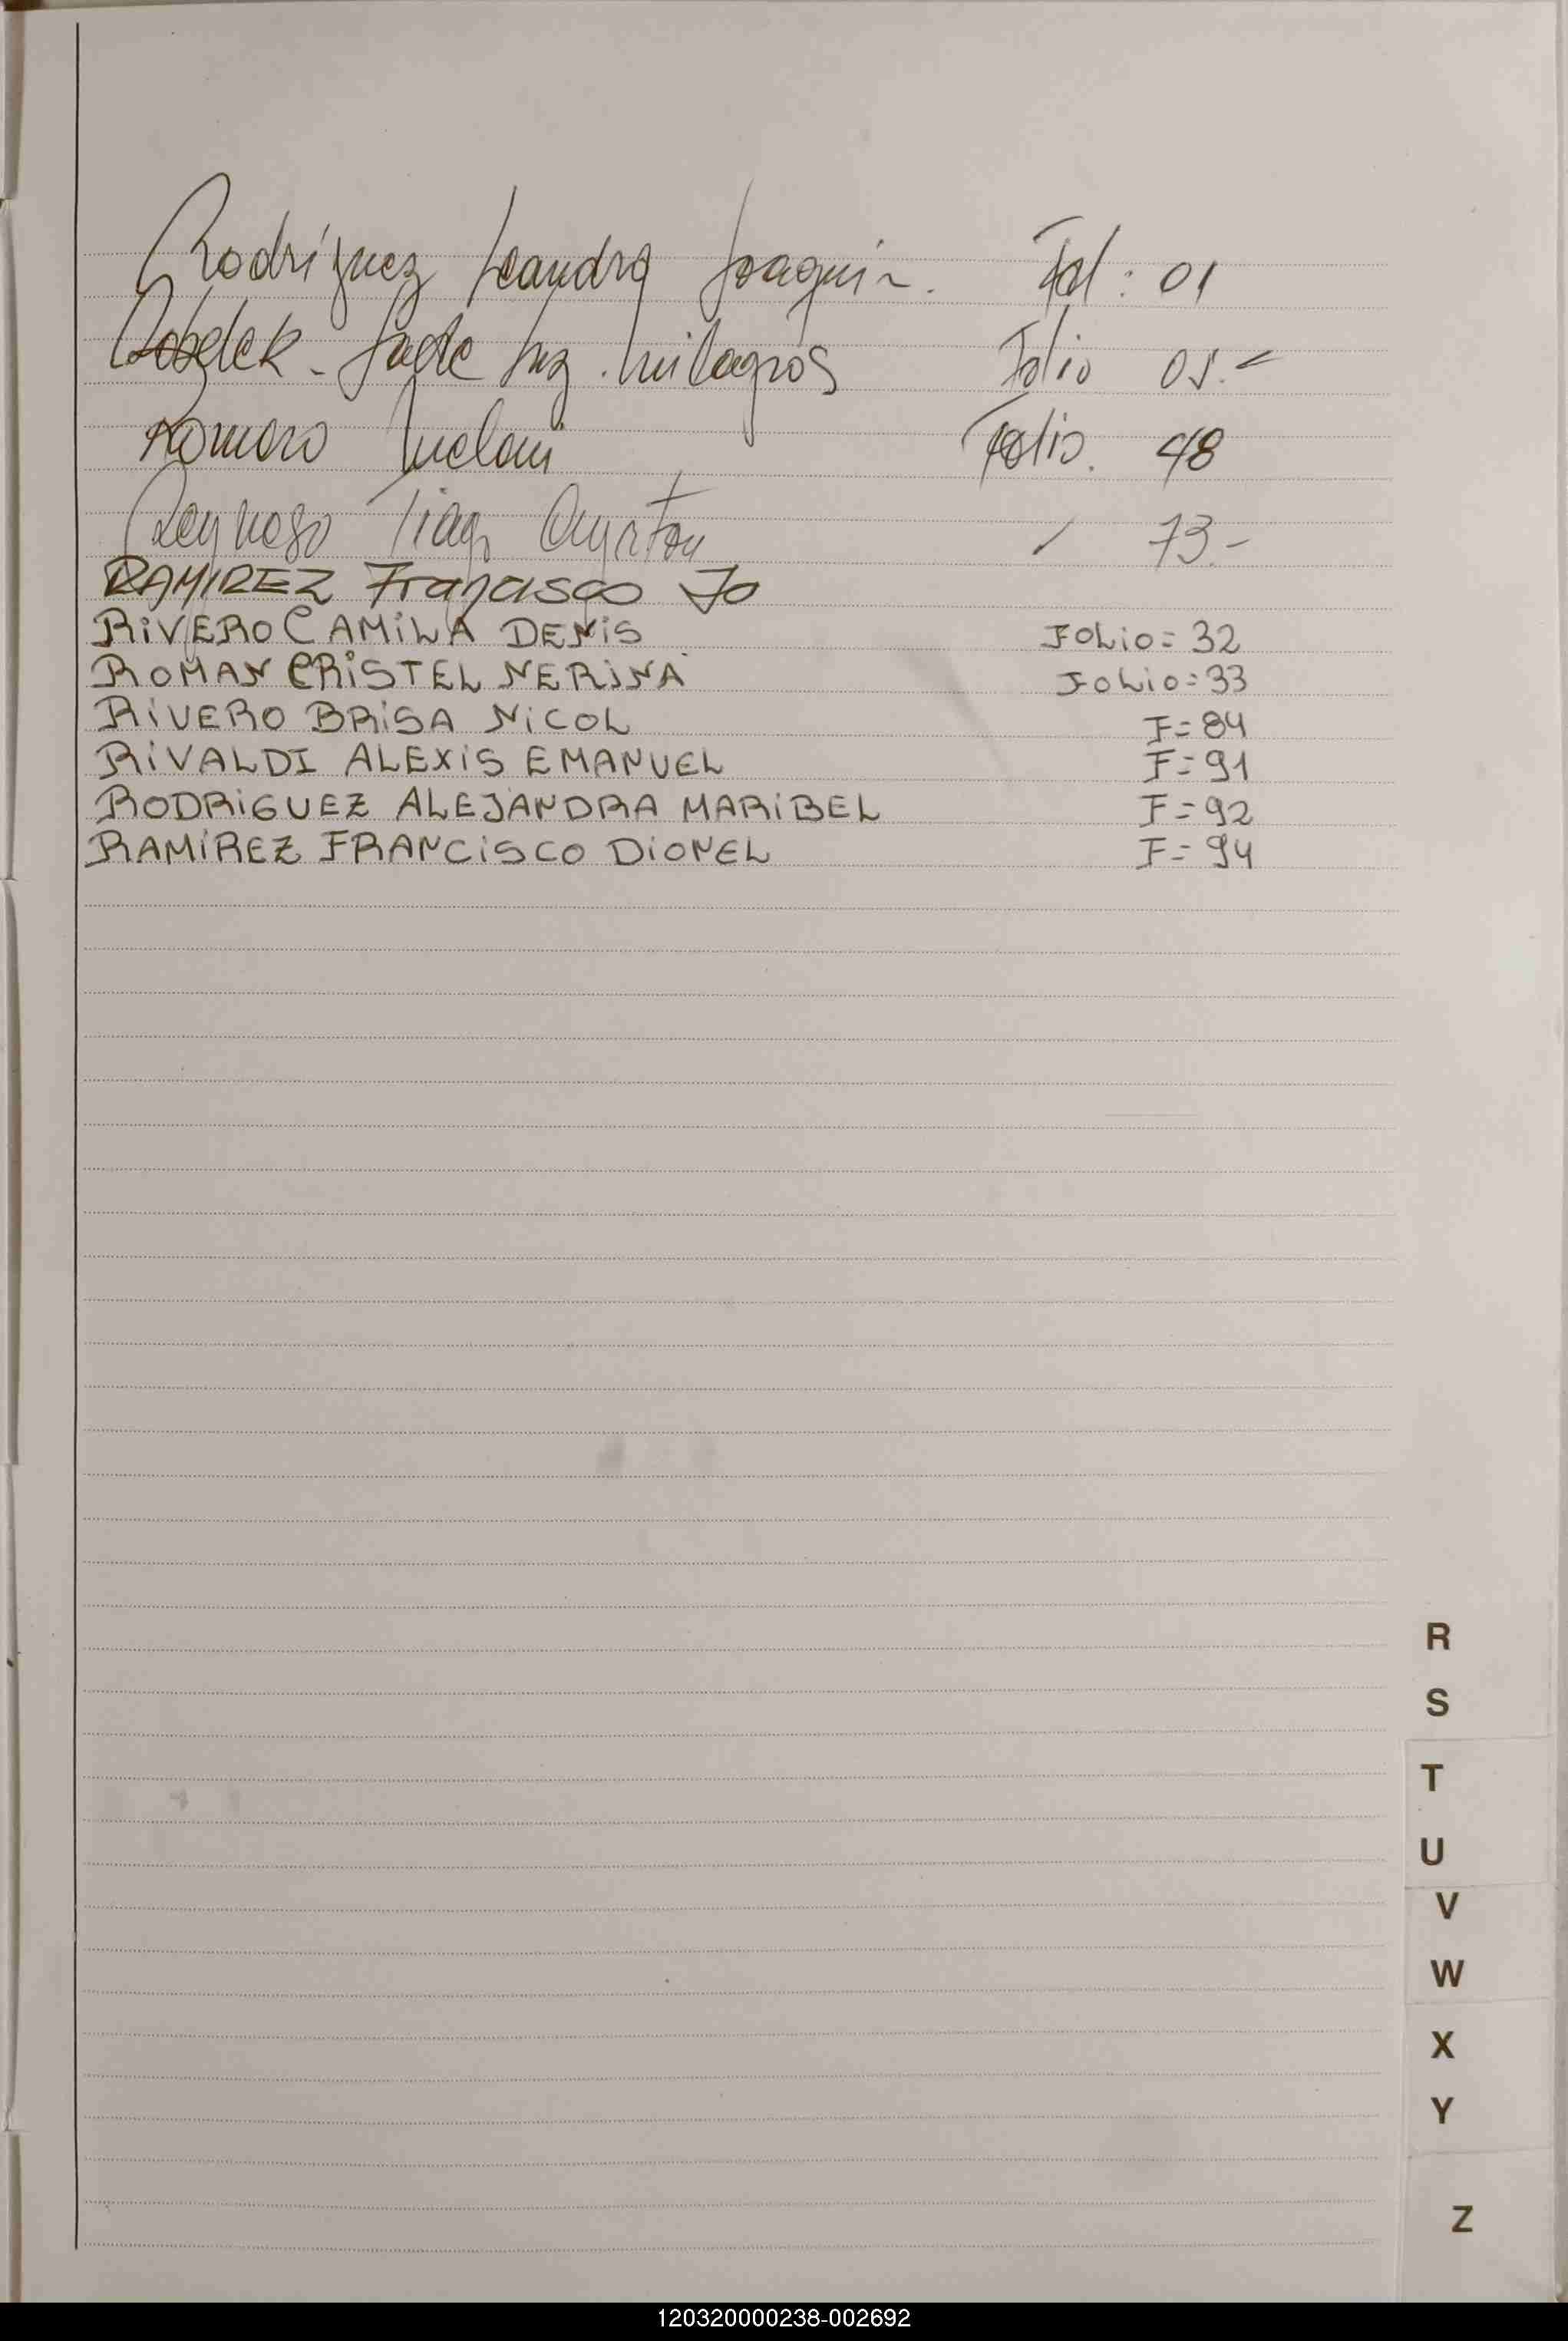 Rodríguez Leandro Joaquin. Fol: 01
Jade Luz Milagros Folio 05.-
Romero Melani Folio. 48
Reynoso Tiago Ayrton 73.-
RAMIREZ Francisco Jo
RIVERO CAMILA DENIS FOLIO = 32
ROMAN CRISTEL NERINA FOLIO = 33
RIVERO BRISA NICOL F = 84
RIVALDI ALEXIS EMANUEL F = 91
RODRIGUEZ ALEJANDRA MARIBEL F = 92
RAMÍREZ FRANCISCO DIONEL F = 94
R
S
T
U
V
W
X
Y
Z
120320000238-002692